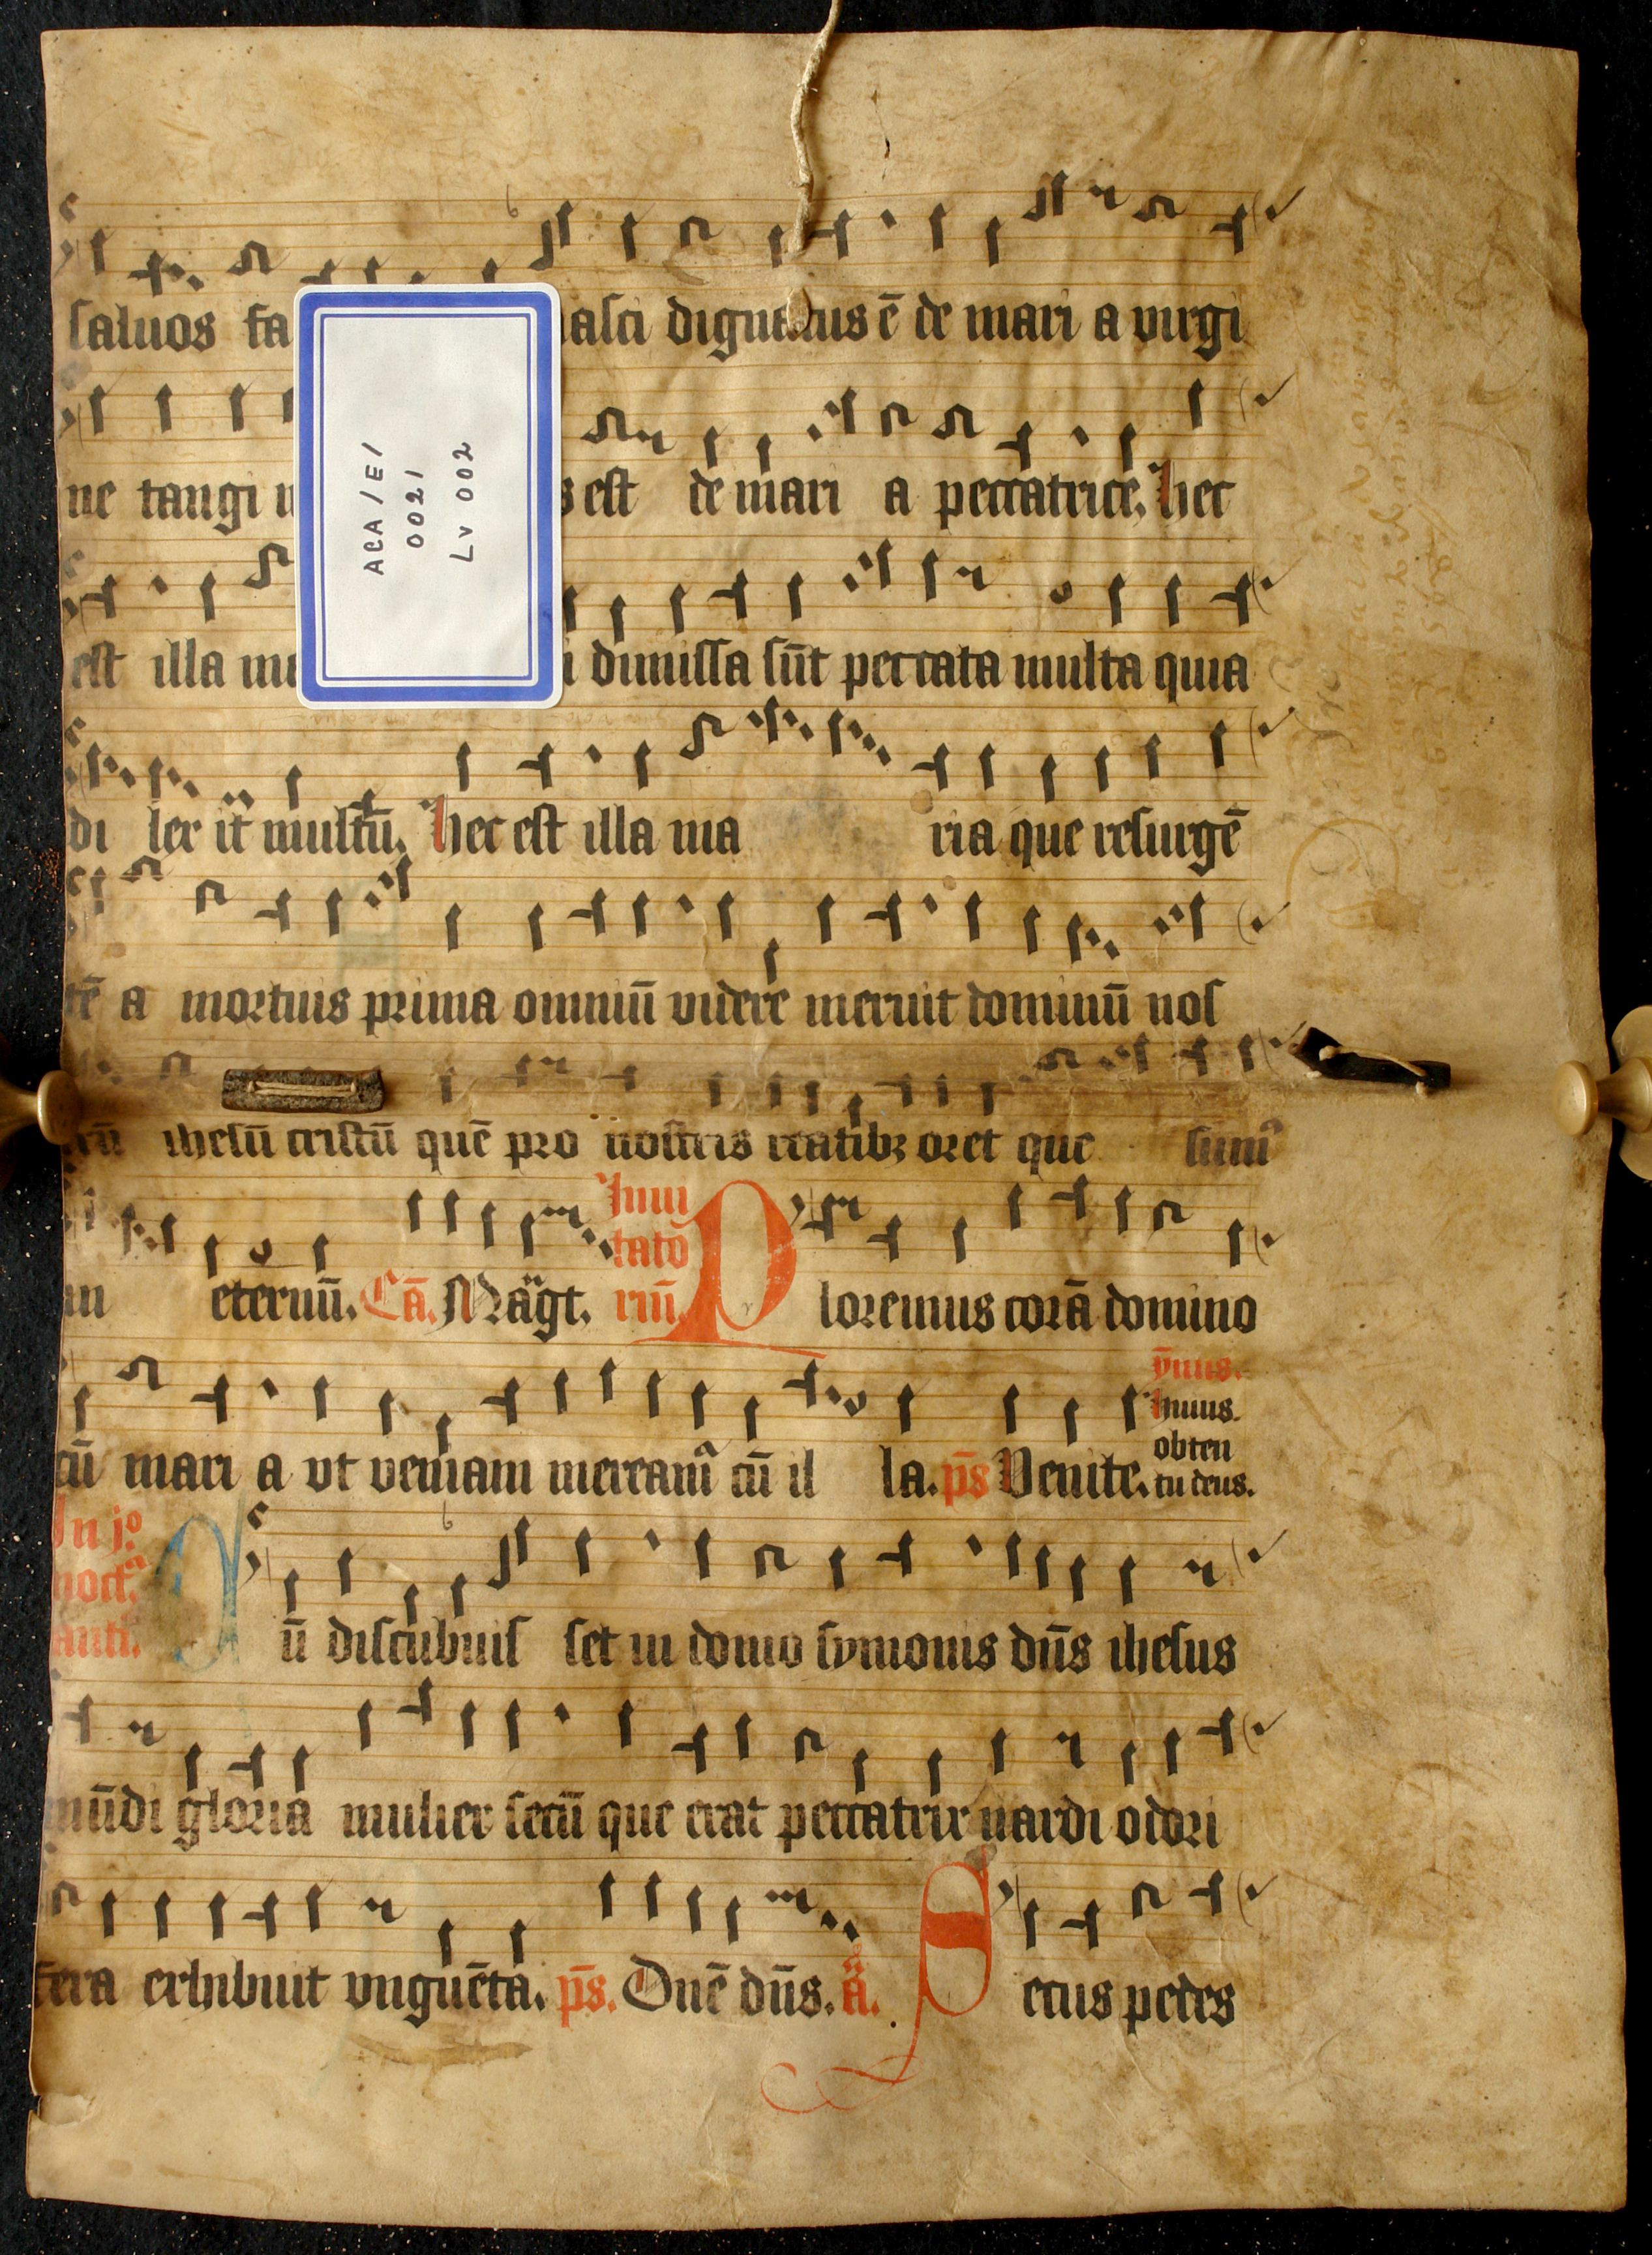 saluos fa nasci dignatus ē de mari a virgi
ACA / E /
0021
LV 002
ne tangi est de mari a peccatrice. hec
est illa ma i dimissa sūt peccata multa quia
di lex it multū. hec est illa ma ria que resurgē
tē a mortuis prima omniū videre meruit dominū nos
trū ihesū cristū quē pro nostris reatibꝫ oret que sum̄
eternū. Eā. Mägt.
Inui
tato
riū. Ploremus corā domino
cū mari a vt veniam meream̄ cū il la. p̄s Venite.
ȳnus.
huius.
obten
tu deus.
In jº
noct.
anti. Cū discubuis set in domo symonis dn̄s ihesus
mūdi gloria mulier secū que erat peccatrix nardi odori
fera exhibuit vnguēta. p̄s. Quē dn̄s. ā. Secus pedes